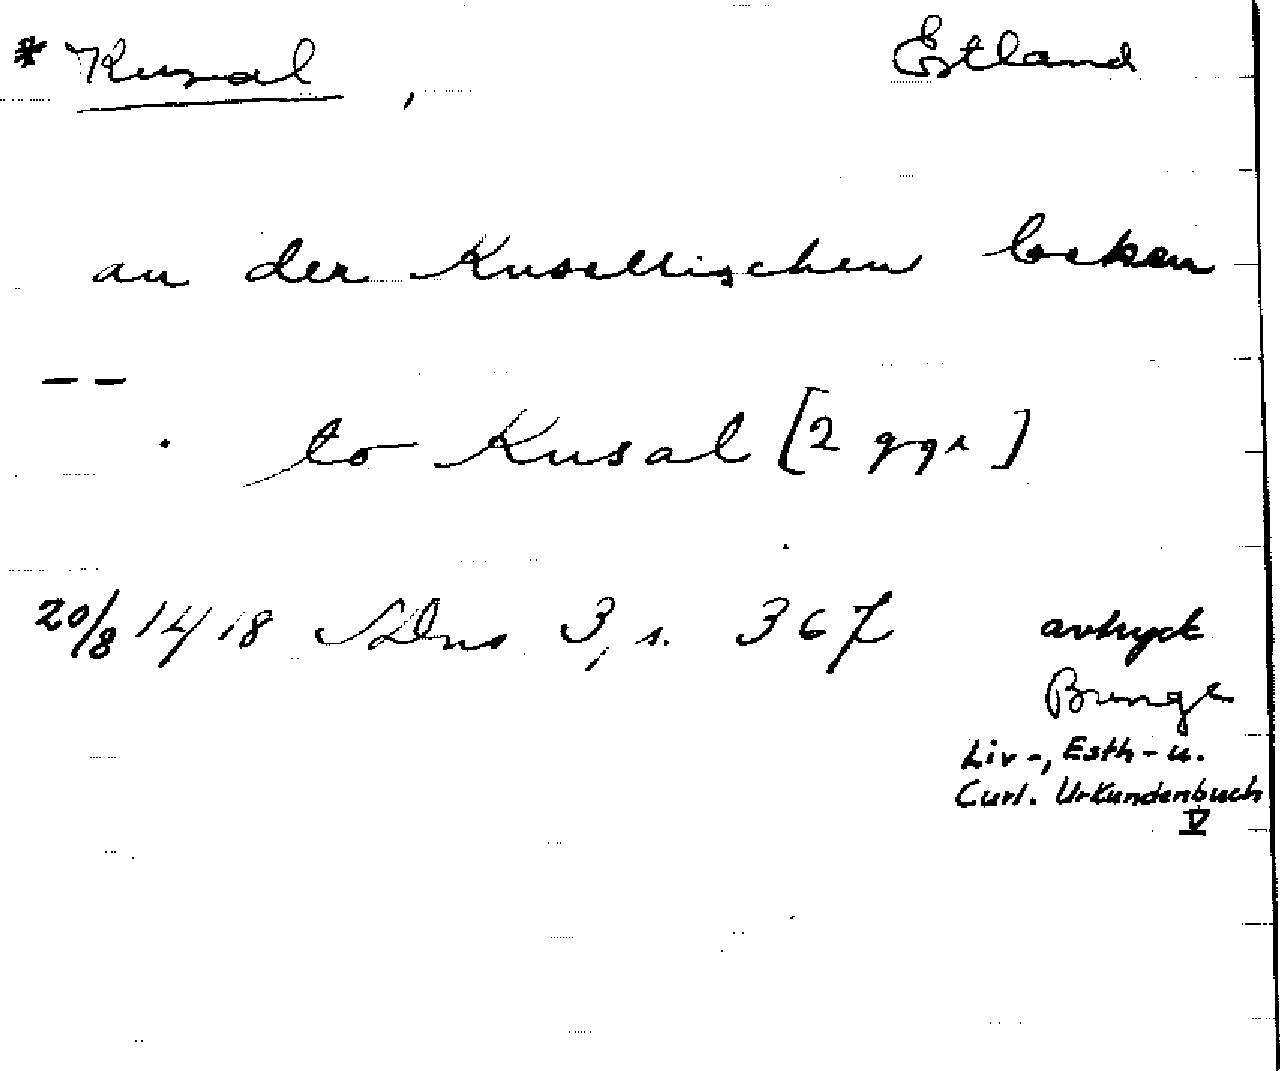 * Kusal, Estland
an der Kusellischen becken
--
to Kusal [2 ggr]
20/8 1418 SDns 3, s. 367 avtryck
Bunge
Liv-, Esth- u.
Curl. Urkundenbuch
V